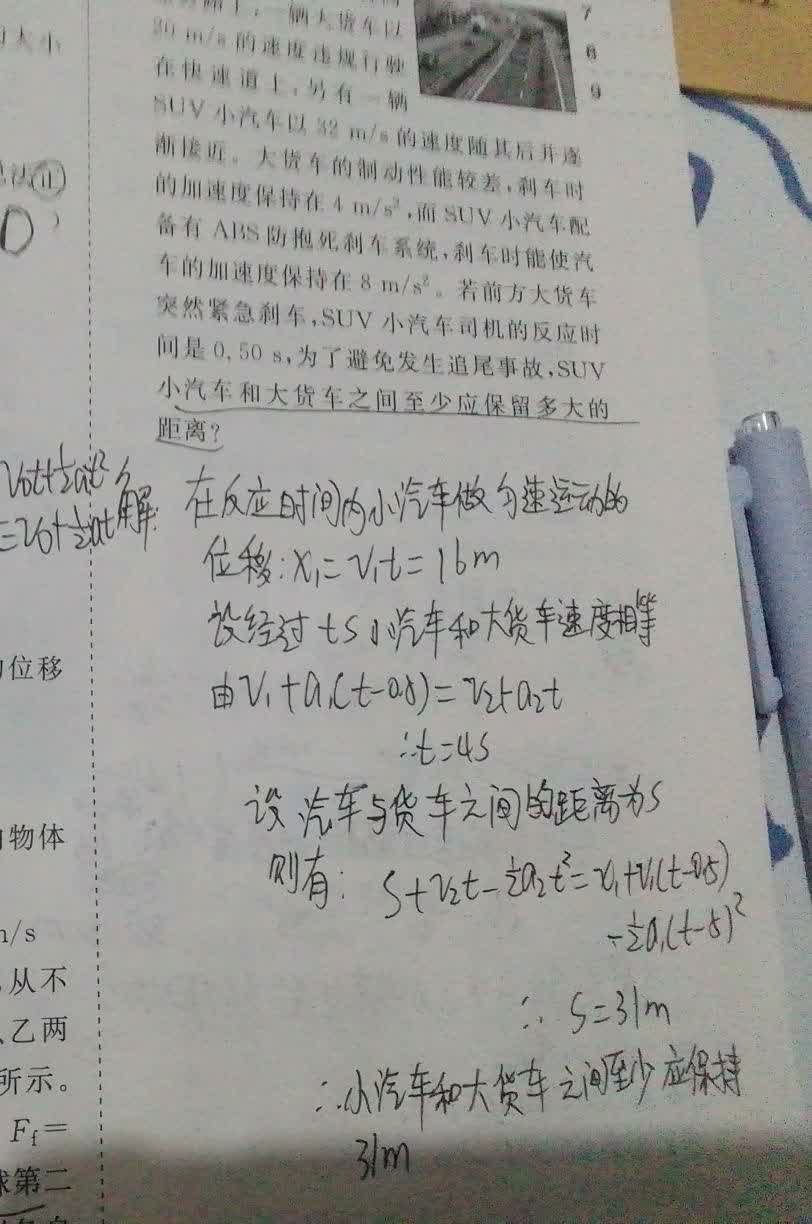 一辆大货车以
30 m/s 的速度违规行驶
在快速道上,另有一辆
SUV 小汽车以 32 m/s 的速度随其后并逐
渐接近。大货车的制动性能较差,刹车时
的加速度保持在 4 m/s²,而 SUV 小汽车配
备有 ABS 防抱死刹车系统,刹车时能使汽
车的加速度保持在 8 m/s²。若前方大货车
突然紧急刹车,SUV 小汽车司机的反应时
间是 0.50 s,为了避免发生追尾事故,SUV
小汽车和大货车之间至少应保留多大的
距离?
7
8
9
大小
(11)
V₀t+½at²
=V₀+½at
位移
物体
m/s
从不
、乙两
所示。
F_f=
第二
解: 在反应时间内小汽车做匀速运动的
位移:x₁=v₁t=16m
设经过 ts 小汽车和大货车速度相等
由 v₁+a₁(t-0.5)=v₂+a₂t
∴t=4s
设汽车与货车之间的距离为S
则有: S+v₂t-½a₂t²=x₁+v₁(t-0.5)
-½a₁(t-5)²
∴ S=31m
∴小汽车和大货车之间至少应保持
31m